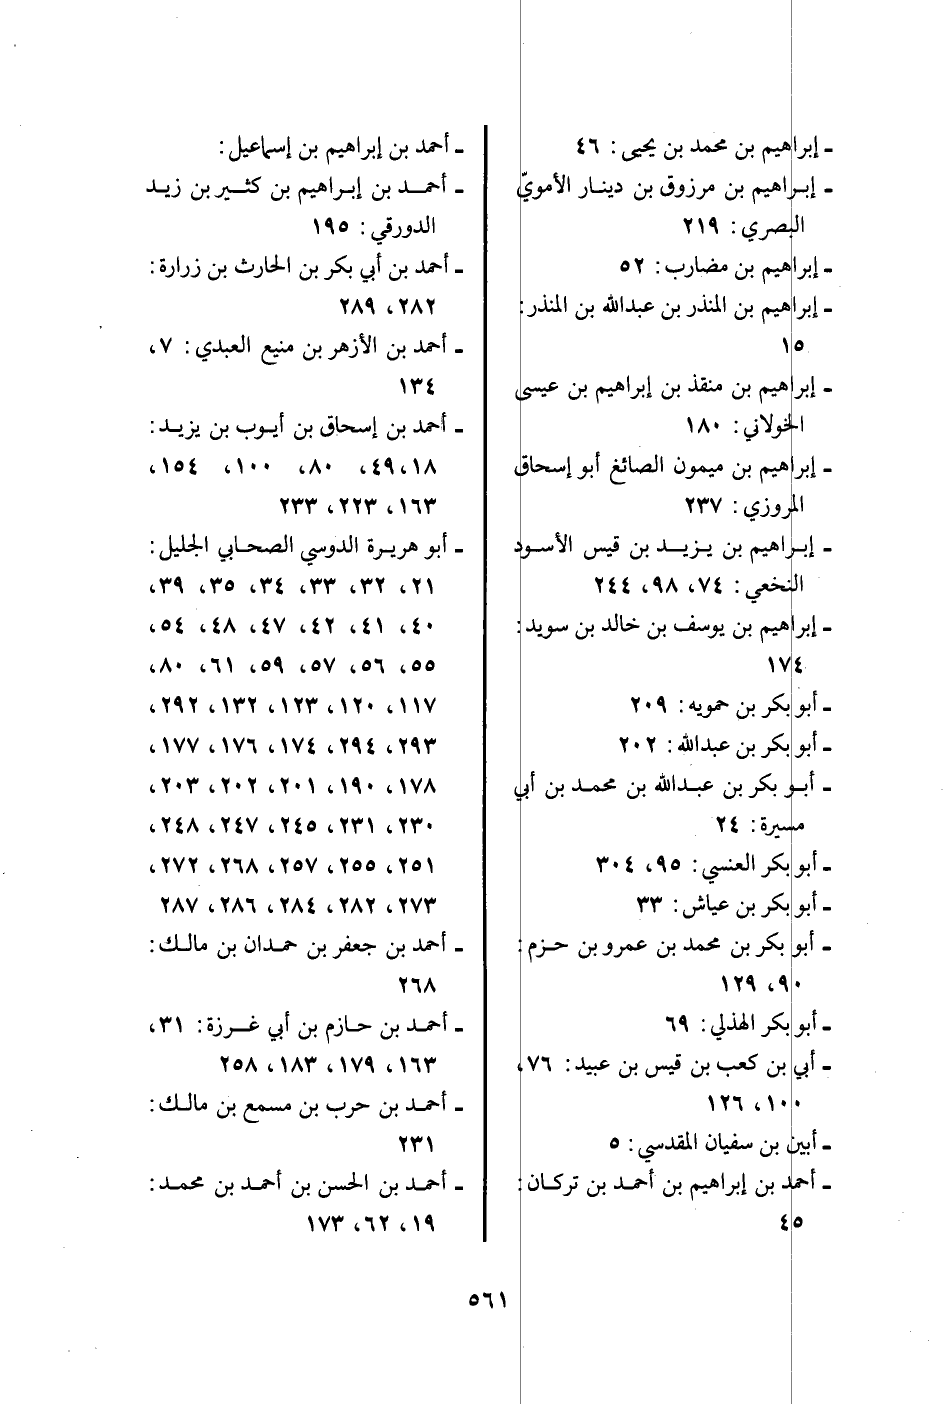 ـ إبراهيم بن محمد بن يحيى: ٤٦
ـ إبـراهيم بن مرزوق بن دينـار الأمويّ
البصري: ٢١٩
ـ إبراهيم بن مضارب: ٥٢
ـ إبراهيم بن المنذر بن عبدالله بن المنذر:
١٥
ـ إبراهيم بن منقذ بن إبراهيم بن عيسى
الخولاني: ١٨٠
ـ إبراهيم بن ميمون الصائغ أبو إسحاق
المروزي: ٢٣٧
ـ إبـراهيم بن يـزيـد بن قيس الأسـود
النخعي: ٧٤، ٩٨، ٢٤٤
ـ إبراهيم بن يوسف بن خالد بن سويد:
١٧٤
ـ أبو بكر بن حمويه: ٢٠٩
ـ أبو بكر بن عبدالله: ٢٠٢
ـ أبـو بكر بن عبـدالله بن محمـد بن أبي
مسيرة: ٢٤
ـ أبو بكر العنسي: ٩٥، ٣٠٤
ـ أبو بكر بن عياش: ٣٣
ـ أبو بكر بن محمد بن عمرو بن حـزم:
٩٠، ١٢٩
ـ أبو بكر الهذلي: ٦٩
ـ أبي بن كعب بن قيس بن عبيد: ٧٦،
١٠٠، ١٢٦
ـ أبين بن سفيان المقدسي: ٥
ـ أحمد بن إبراهيم بن أحمـد بن تركـان:
٤٥
ـ أحمد بن إبراهيم بن إسماعيل:
ـ أحمـد بن إبـراهيم بن كثـير بن زيـد
الدورقي: ١٩٥
ـ أحمد بن أبي بكر بن الحارث بن زرارة:
٢٨٢، ٢٨٩
ـ أحمد بن الأزهر بن منيع العبدي: ٧،
١٣٤
ـ أحمد بن إسحاق بن أيـوب بن يزيـد:
١٨،٤٩، ٨٠، ١٠٠، ١٥٤،
١٦٣، ٢٢٣، ٢٣٣
ـ أبو هريـرة الدوسي الصحـابي الجليل:
٢١، ٣٢، ٣٣، ٣٤، ٣٥، ٣٩،
٤٠، ٤١، ٤٢، ٤٧، ٤٨، ٥٤،
٥٥، ٥٦، ٥٧، ٥٩، ٦١، ٨٠،
١١٧، ١٢٠، ١٢٣، ١٣٢، ٢٩٢،
٢٩٣، ٢٩٤، ١٧٤، ١٧٦، ١٧٧،
١٧٨، ١٩٠، ٢٠١، ٢٠٢، ٢٠٣،
٢٣٠، ٢٣١، ٢٤٥، ٢٤٧، ٢٤٨،
٢٥١، ٢٥٥، ٢٥٧، ٢٦٨، ٢٧٢،
٢٧٣، ٢٨٢، ٢٨٤، ٢٨٦، ٢٨٧
ـ أحمد بن جعفر بن حمدان بن مالـك:
٢٦٨
ـ أحمـد بن حـازم بن أبي غـرزة: ٣١،
١٦٣، ١٧٩، ١٨٣، ٢٥٨
ـ أحمـد بن حرب بن مسمع بن مالـك:
٢٣١
ـ أحمـد بن الحسن بن أحمـد بن محمـد:
١٩، ٦٢، ١٧٣
٥٦١